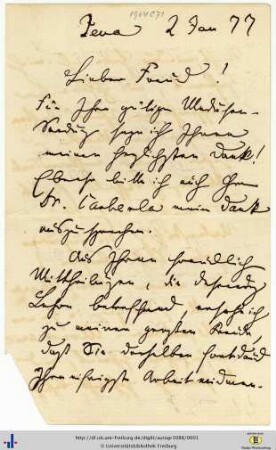 1944/271
Jena 2 Jan 77
Lieber Freund!
Für Ihre gütige Medusen-
Sendung sage ich Ihnen
meinen herzlichsten Dank!
Ebenso bitte ich auch Herrn
Dr. Kaeberle mein Dank
auszusprechen.
Aus Ihren freundlichen
Mittheilungen, die
Lehre betreffend, ersehe ich
zu meiner großen Freude,
daß Sie derselben fortdauernd
Ihre Arbeit widmen.
http://dl.ub.uni-freiburg.de/diglit/autogr0088/0001
© Universitätsbibliothek Freiburg